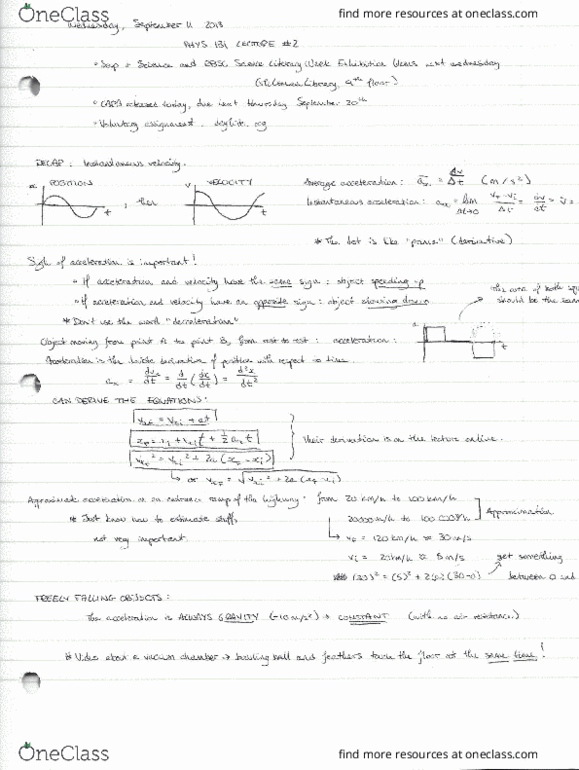 OneClass
find more resources at oneclass.com
Wednesday, September 11 2013
PHYS 131, LECTURE #2
Soup + Science and Science Literacy Week Exhibition ideas next wednesday
Library, 4th floor)
CAPA released today, due next thursday September 20th
Voluntary assignment
RECAP: Instantaneous velocity.
x POSITION t, then v VELOCITY t
Average acceleration: ax = Δv/Δt (m/s²)
Instantaneous acceleration: ax = lim Δt→0 vf-vi/Δt = dv/dt = v̇ =
* The dot is like "prime" (derivative)
Sign of acceleration is important!
• If acceleration and velocity have the same sign: object speeding up
• If acceleration and velocity have an opposite sign: object slowing down
* Don't use the word "decceleration"
the area of both
should be the same
Object moving from point A to point B, from rest to rest: acceleration: a t
Acceleration is the double derivative of position with respect to time.
ax = dvx/dt = d/dt (dx/dt) = d²x/dt²
CAN DERIVE THE EQUATIONS:
vxf = vxi + at
xf = xi + vxi t + ½ axt
vxf² = vxi² + 2a (xf - xi)
} their derivation is on the lecture online.
↳ or vxf = √vxi² + 2a (xf-xi)
Approximate acceleration on an entrance ramp of the highway: from 20 km/h to 100 km/h
* Just know how to estimate stuff,
not very important.
20000 m/h to
] Approximation
↳ vf = 120 km/h ≈ 30 m/s
vi = 20km/h ≈ 5 m/s
get something
between 0 and
(30)² = (5)² + 2(a)(30-0)
FREELY FALLING OBJECTS:
The acceleration is ALWAYS GRAVITY (-10 m/s²) → CONSTANT (with no air resistance.)
* Video about a vacuum chamber → bowling ball and feathers touch the floor at the same time!
OneClass
find more resources at oneclass.com